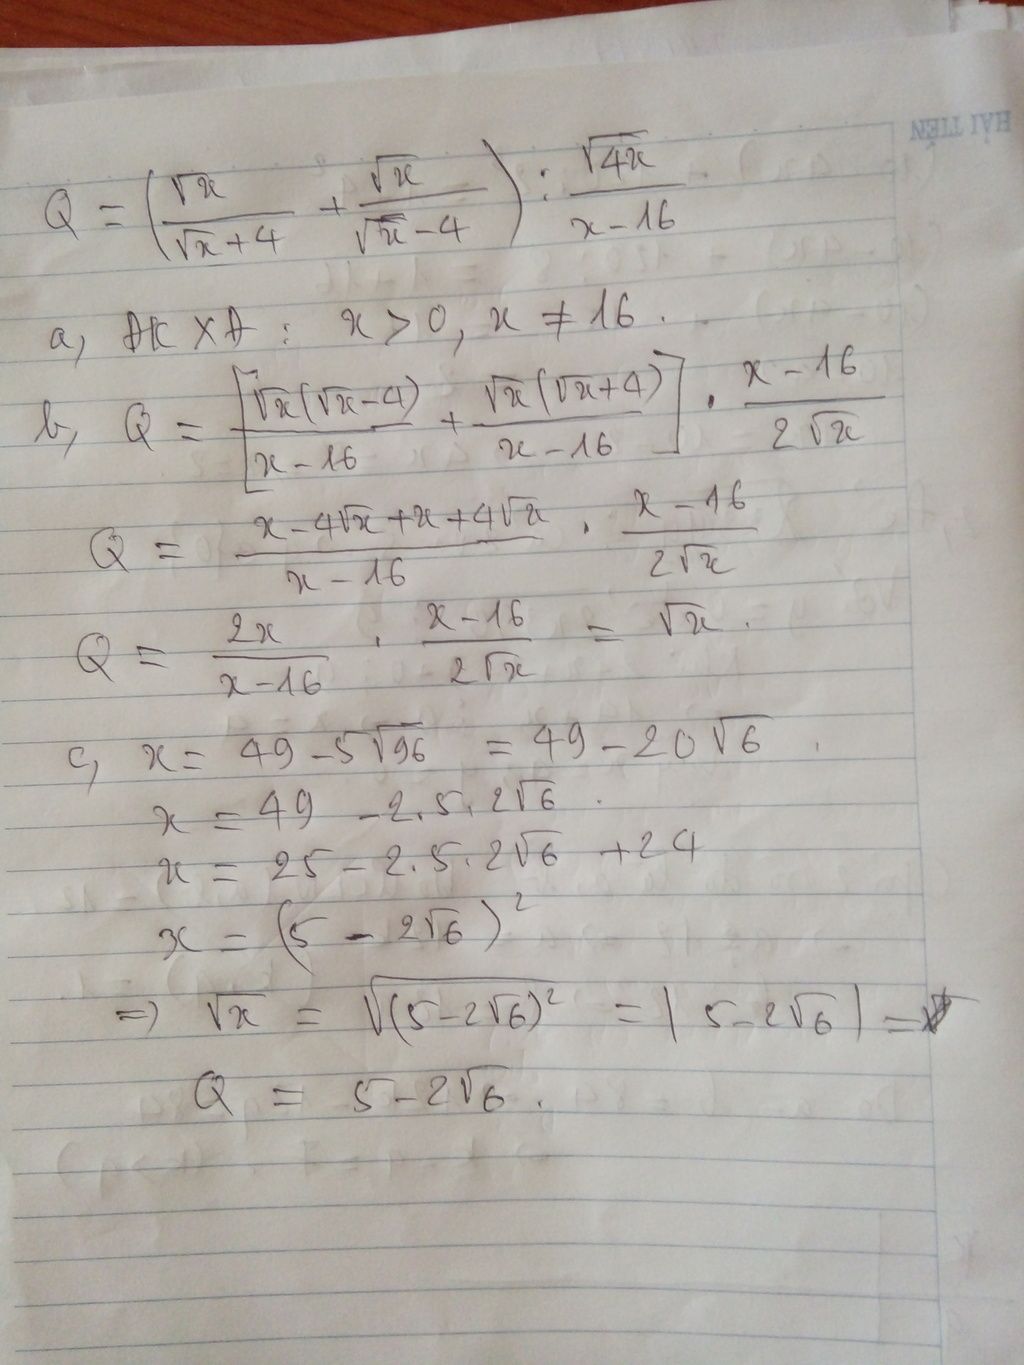 HẢI TIẾN
Q = (√x/(√x+4) + √x/(√x-4)) : √4x/(x-16)
a, ĐKXĐ : x > 0, x ≠ 16.
b, Q = [√x(√x-4)/(x-16) + √x(√x+4)/(x-16)] . (x-16)/(2√x)
Q = (x-4√x+x+4√x)/(x-16) . (x-16)/(2√x)
Q = 2x/(x-16) . (x-16)/(2√x) = √x.
c, x = 49-5√96 = 49-20√6.
x = 49 -2.5.2√6.
x = 25-2.5.2√6 +24
x = (5 - 2√6)²
=> √x = √((5-2√6)²) = |5-2√6| =
Q = 5-2√6.